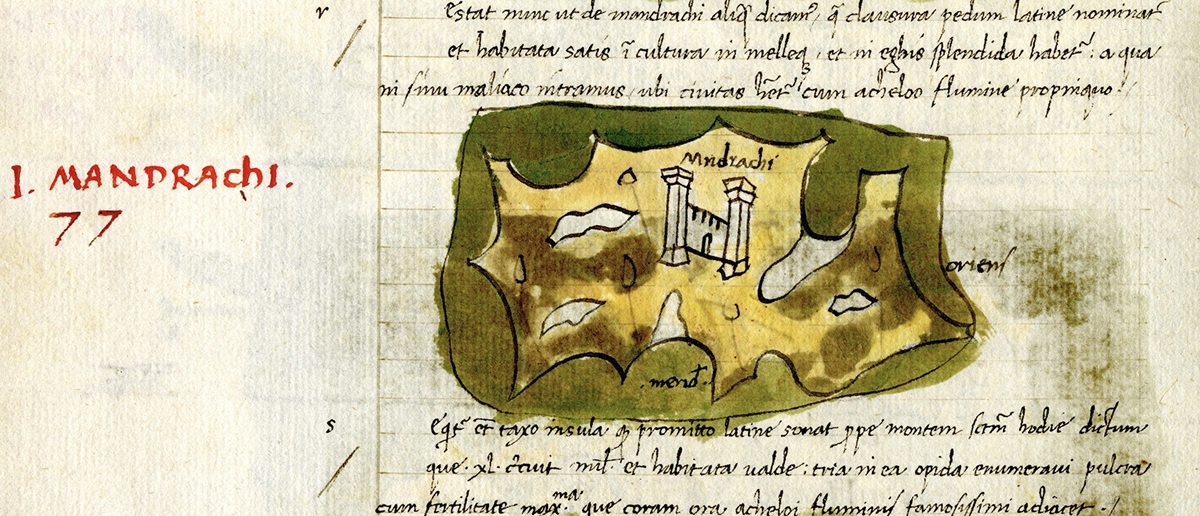 r
Restat nunc ut de mandrachi aliq̃ dicam⁹, q̃ clausura pedum latine nominat᷑
et habitata satis ĩ cultura in melleq, et in eghis splendida habet᷑: a qua
in sinu maliaco intramus, ubi civitas hẽt᷑ cum acheloo flumine propinquo./
I. MANDRAchI.
77
Mndrachi
oriens
merid.
s
taxo insula q̃ promitto latine sonat ꝓpe montem sctm̃ hodie dictum
que .xl. mil. et habitata valde: tria in ea opida enumeravi pulcra
cum fertilitate max.ma que coram ora acheloi fluminis famosissimi adiacet./